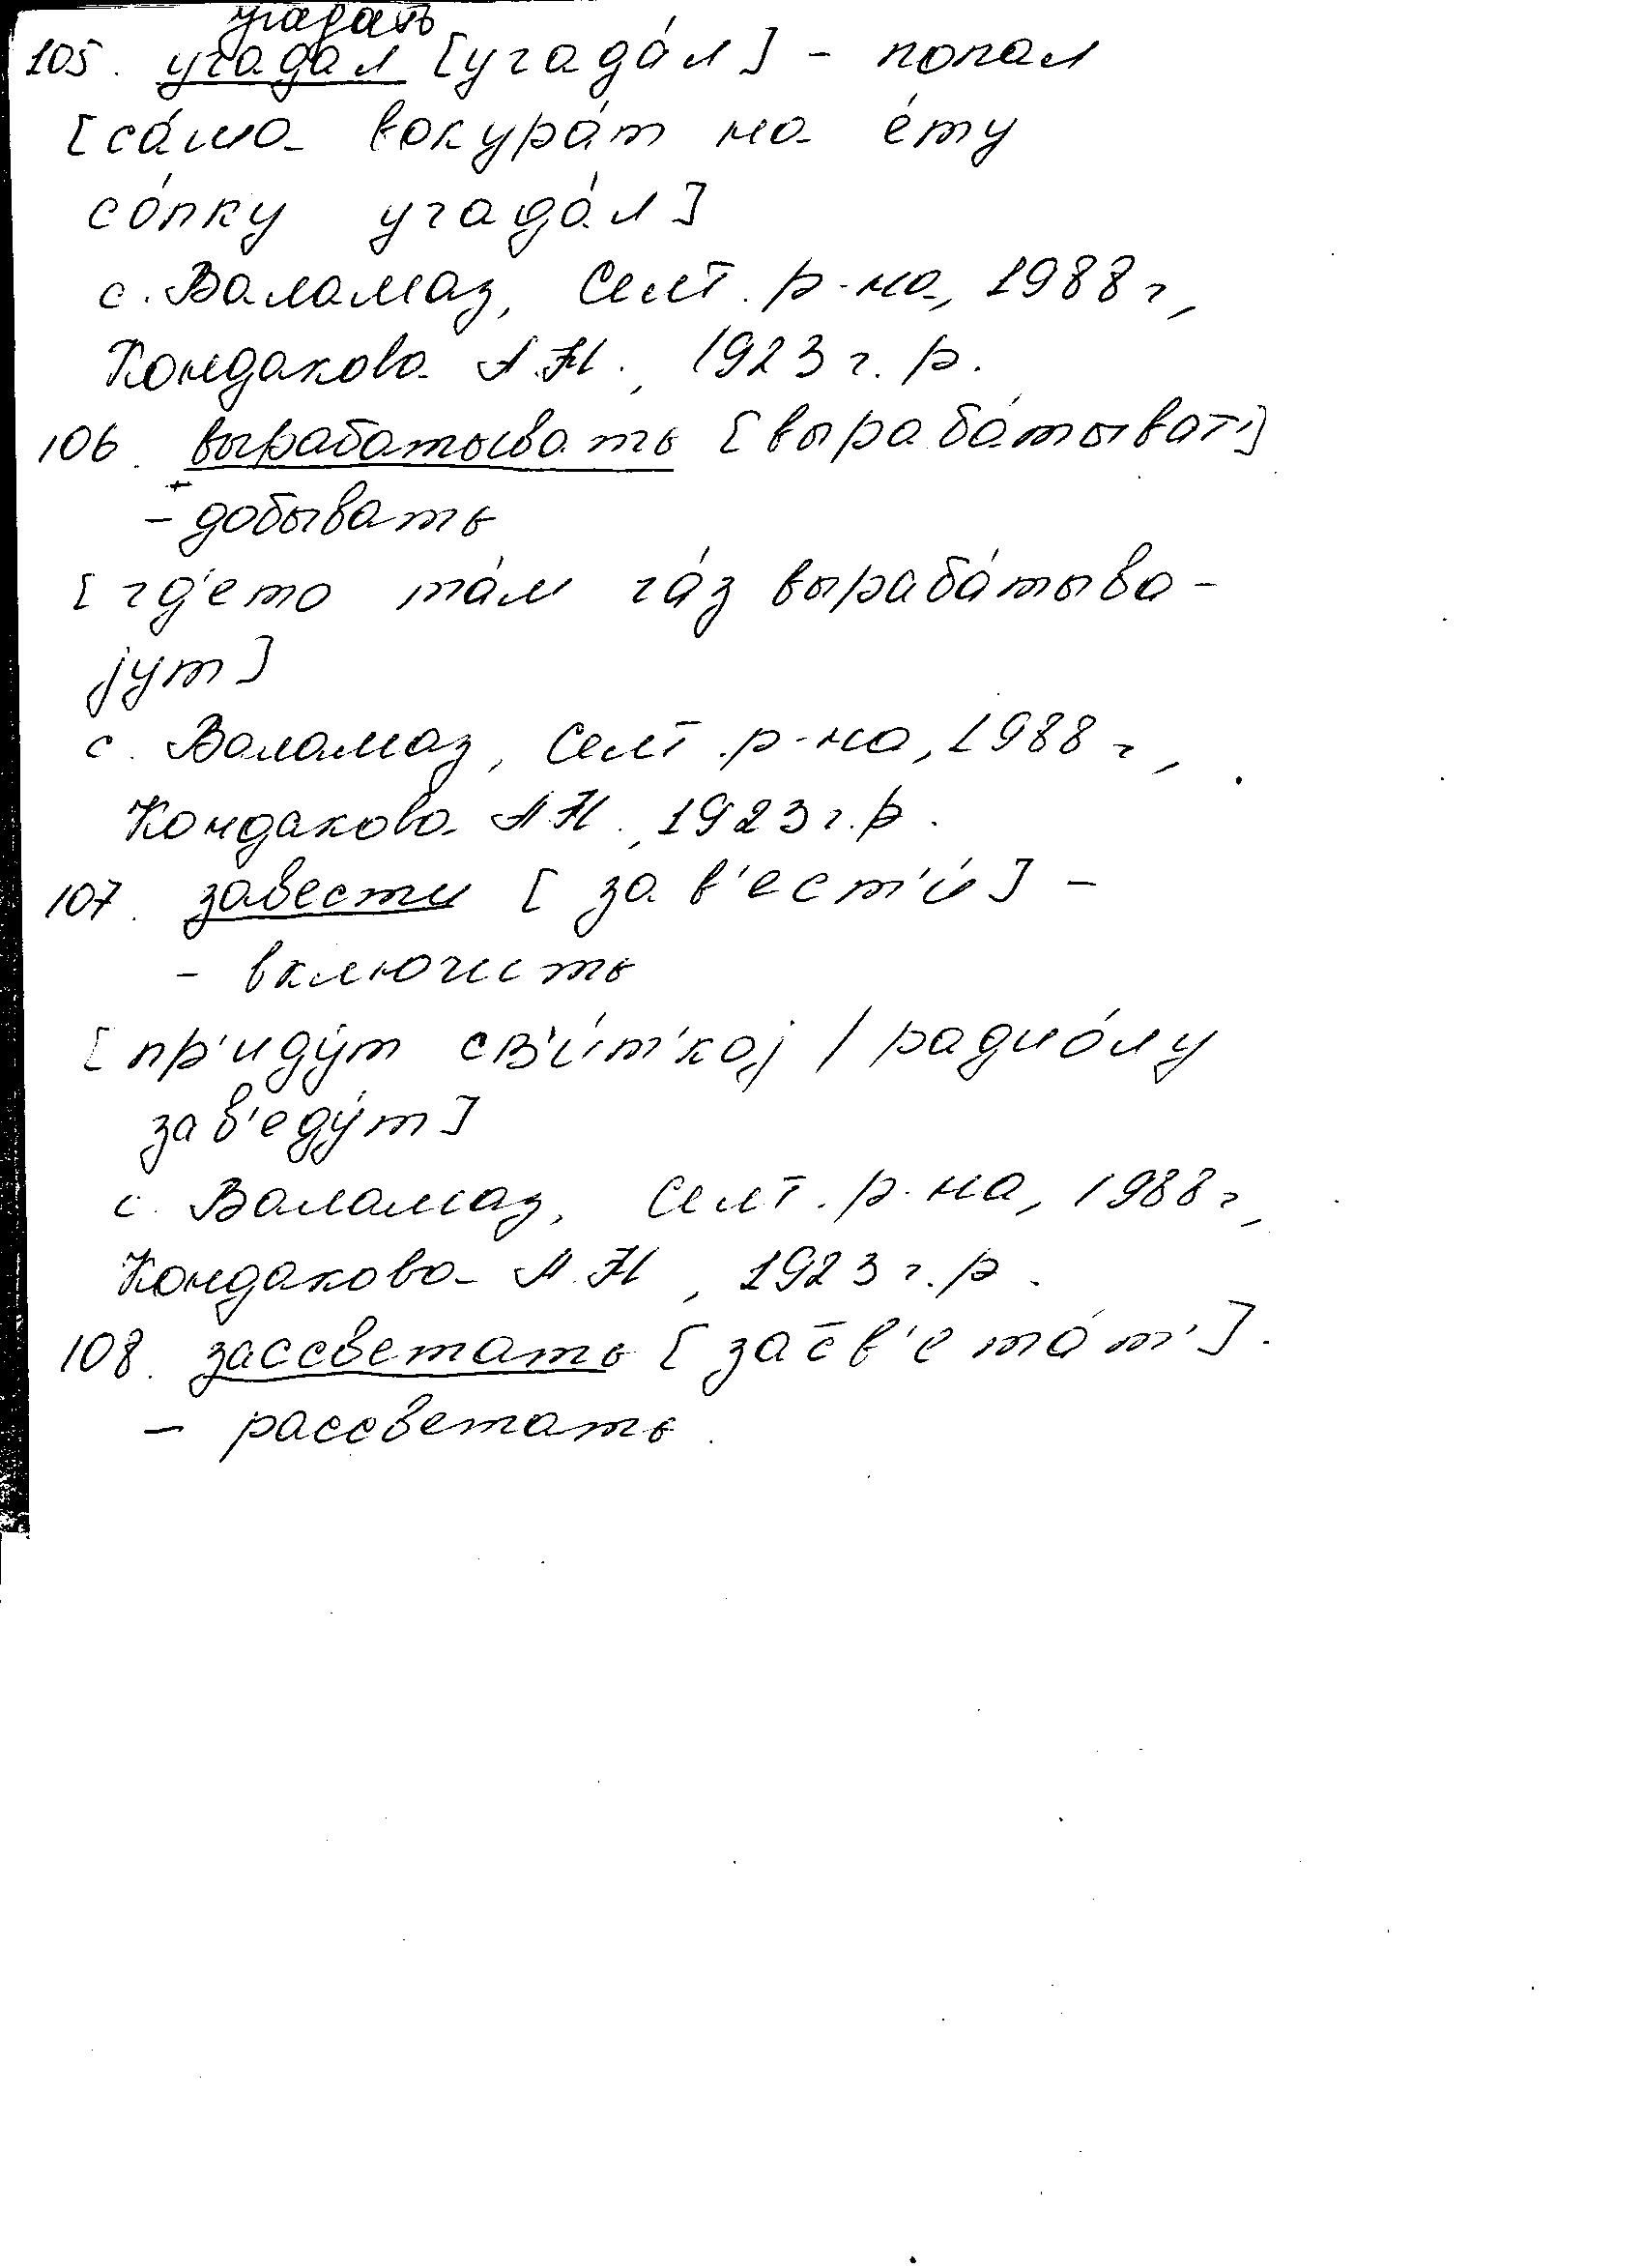 угадать
105. угадал [угада́л] - попал
[са́ма вокура́т на е́ту
со́пку угада́л]
с. Валамаз, Селт. р-на, 1988 г,
Кондакова А.Н., 1923 г. р.
106. вырабатывать [выраба́тыват']
- добывать
[гд'ето та́м га́з выраба́тыва-
jут]
с. Валамаз, Селт. р-на, 1988 г,
Кондакова А.Н., 1923 г. р.
107. завести [зав'ест'и́] -
- включить
[пр'иду́т св'и́т'кој / радио́лу
зав'еду́т]
с. Валамаз, Селт. р-на, 1988 г,
Кондакова А.Н, 1923 г. р.
108. зассветать [зас̄в'ета́т'].
- рассветать.